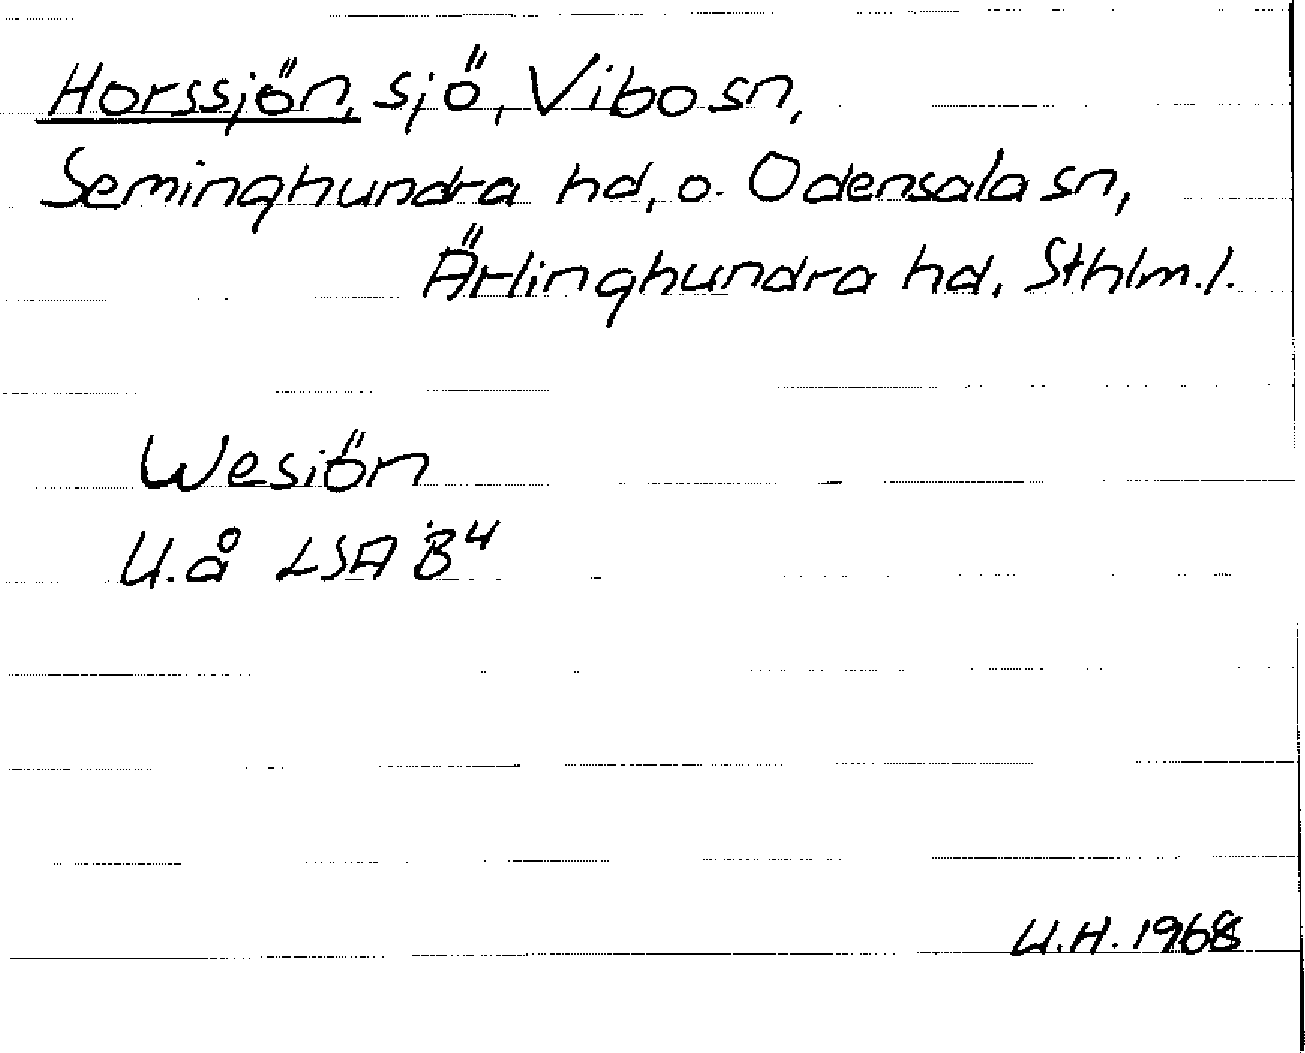 Horssjön, sjö, Vibo sn,
Seminghundra hd, o. Odensala sn,
Ärlinghundra hd, Sthlm.l.
Wesiön
U.å LSA B⁴
U.H. 1968